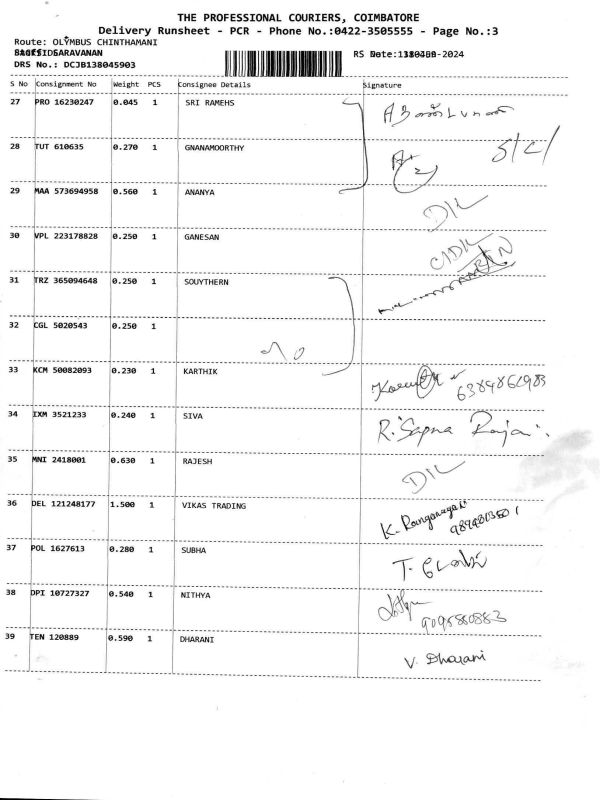 THE PROFESSIONAL COURIERS, COIMBATORE
Delivery Runsheet - PCR - Phone No.:0422-3505555 - Page No.:3
Route: OLYMBUS CHINTHAMANI
SARAVANAN
DRS No.: DCJB138045903
RS Date: -2024
S No Consignment No Weight PCS Consignee Details Signature
27 PRO 16230247 0.045 1 SRI RAMEHS
28 TUT 610635 0.270 1 GNANAMOORTHY
S/C/
29 MAA 573694958 0.560 1 ANANYA
DIL
30 VPL 223178828 0.250 1 GANESAN
31 TRZ 365094648 0.250 1 SOUYTHERN
32 CGL 5020543 0.250 1
33 KCM 50082093 0.230 1 KARTHIK
34 IXM 3521233 0.240 1 SIVA
R. Sapna Raja
35 MNI 2418001 0.630 1 RAJESH
DIL
36 DEL 121248177 1.500 1 VIKAS TRADING
37 POL 1627613 0.280 1 SUBHA
38 DPI 10727327 0.540 1 NITHYA
39 TEN 120889 0.590 1 DHARANI
V. Dharani